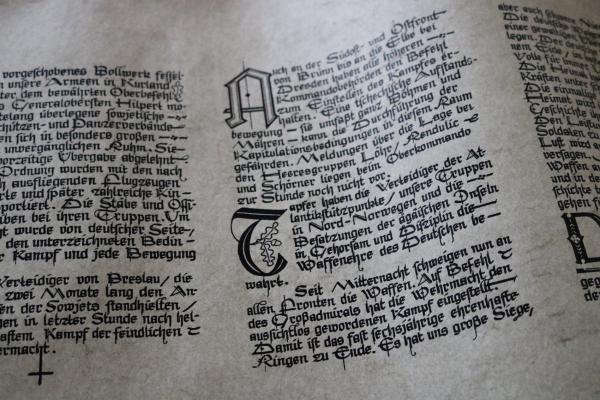 vorgeschobenes Bollwerk fessel-
n unsere Armeen in Kurland
ter dem bewährten Oberbefehl
Generalobersten Hilpert mo-
telang überlegene sowjetische
chützen- und Panzerverbände
en sich in besonders großen
unvergänglichen Ruhm. Sie
orzeitige Übergabe abgelehnt
Ordnung wurden mit den nach
ch ausfliegenden Flugzeugen
rte und später zahlreiche Kin-
portiert. Die Stäbe und Offi-
aben bei ihren Truppen. Um
gt wurde von deutscher Seite,
den unterzeichneten Bedin-
r Kampf und jede Bewegung
Verteidiger von Breslau, die
zwei Monate lang den An
en der Sowjets standhielten,
gen in letzter Stunde nach hel-
aftem Kampf der feindlichen
ermacht.
Auch an der Südost- und Ostfront
von Brünn bis an die Elbe bei
Dresden haben alle höheren
Kommandobehörden den Befehl
zum Einstellen des Kampfes er-
halten. Eine tschechische Aufstands-
bewegung in fast ganz Böhmen und
Mähren kann die Durchführung der
Kapitulationsbedingungen in diesem Raum
gefährden. Meldungen über die Lage bei
den Heeresgruppen Löhr, Rendulic
und Schörner liegen beim Oberkommando
zur Stunde noch nicht vor.
Tapfer haben die Verteidiger der At
lantikstützpunkte, unsere Truppen
in Nord-Norwegen und die
Besatzungen der ägäischen Inseln
in Gehorsam und Disziplin die
Waffenehre des Deutschen be
wahrt.
Seit Mitternacht schweigen nun an
allen Fronten die Waffen. Auf Befehl
des Großadmirals hat die Wehrmacht den
aussichtlos gewordenen Kampf eingestellt.
Damit ist das fast sechsjährige ehrenhafte
Ringen zu Ende. Es hat uns große Siege,
aber auch schwere
Die deutsche
einer gewaltigen
legen. Der deutsche
nem Eide,
Volk für immer
Die Heimat
Kräften unter
Die einmalige
Heimat wird